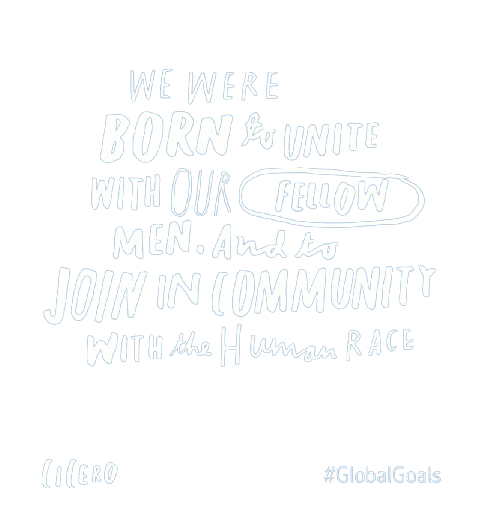 WE WERE
BORN to UNITE
WITH OUR FELLOW
MEN. And to
JOIN IN COMMUNITY
WITH the Human RACE
CICERO
#GlobalGoals